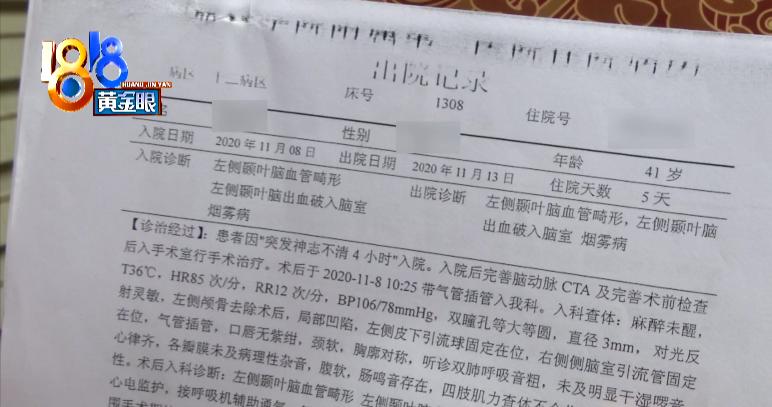 1818
HUANG JIN YAN
黄金眼
出院记录
病区 十二病区 床号 1308 住院号
性别 年龄 41 岁
入院日期 2020 年 11 月 08 日 出院日期 2020 年 11 月 13 日 住院天数 5 天
入院诊断 左侧颞叶脑血管畸形 出院诊断 左侧颞叶脑血管畸形，左侧颞叶脑
左侧颞叶脑出血破入脑室 出血破入脑室 烟雾病
烟雾病
【诊治经过】：患者因"突发神志不清 4 小时"入院。入院后完善脑动脉 CTA 及完善术前检查
后入手术室行手术治疗。术后于 2020-11-8 10:25 带气管插管入我科。入科查体：麻醉未醒，
T36℃，HR85 次/分，RR12 次/分，BP106/78mmHg，双瞳孔等大等圆，直径 3mm，对光反
射灵敏，左侧颅骨去除术后，局部凹陷，左侧皮下引流球固定在位，右侧侧脑室引流管固定
在位，气管插管，口唇无紫绀，颈软，胸廓对称，听诊双肺呼吸音粗，未及明显干湿啰音，
心律齐，各瓣膜未及病理性杂音，腹软，肠鸣音存在，四肢肌力查体不
性。术后入科诊断：左侧颞叶脑血管畸形 左侧颞叶
心电监护，接呼吸机辅助通气